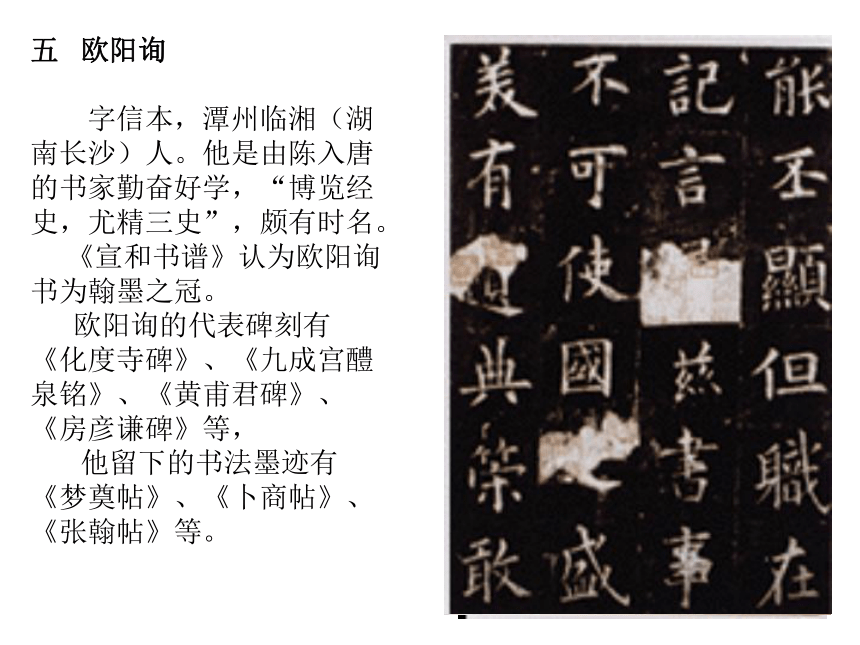 五 欧阳询
字信本，潭州临湘（湖
南长沙）人。他是由陈入唐
的书家勤奋好学，“博览经
史，尤精三史”，颇有时名。
《宣和书谱》认为欧阳询
书为翰墨之冠。
欧阳询的代表碑刻有
《化度寺碑》、《九成宫醴
泉铭》、《黄甫君碑》、
《房彦谦碑》等，
他留下的书法墨迹有
《梦奠帖》、《卜商帖》、
《张翰帖》等。
能丕顯但職在
記言茲書事
不可使國之盛
美有遺典策敢